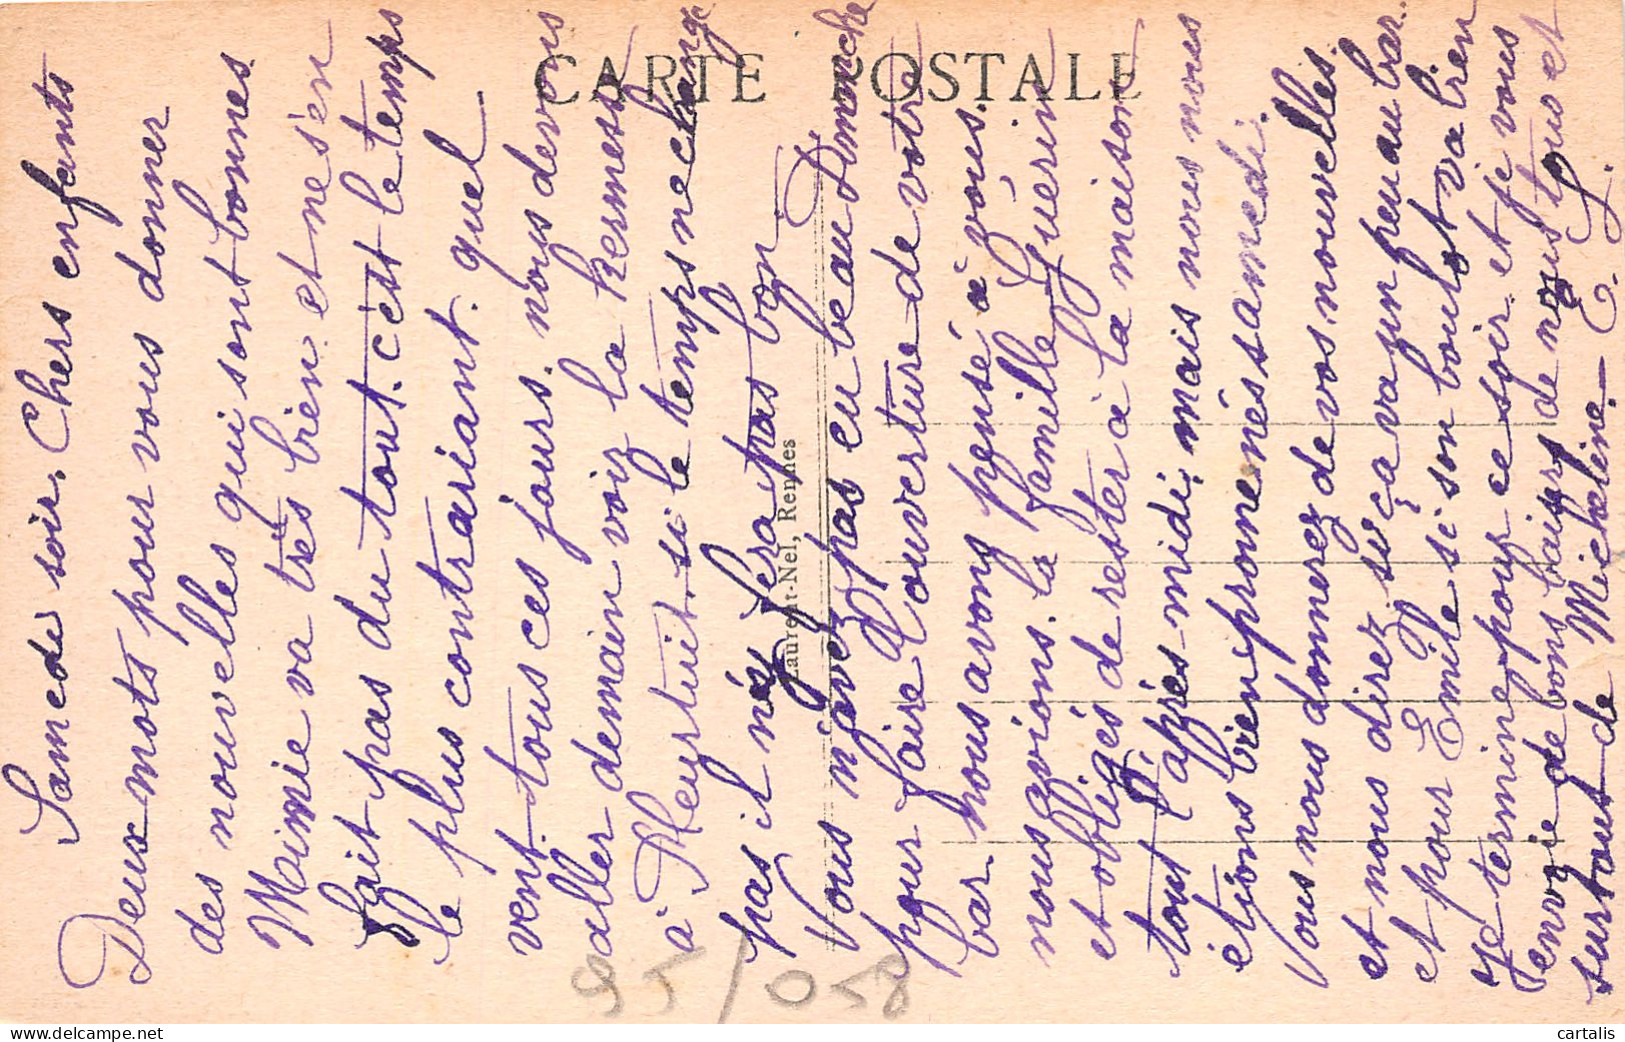 CARTE POSTALE
Samedi soir. Chers enfants
Deux mots pour vous donner
des nouvelles qui sont bonnes
Mimie va très bien. et ne s'en
fait pas du tout. c'est le temps
le plus contrariant. quel
vent. tous ces jours. nous devons
aller demain voir la kermesse
à Pleurtuit. si le temps ne change
pas il ne fera pas bon.
Vous n'avez pas eu beau Dimanche
pour faire l'ouverture de votre
bar. nous avons pensé à vous.
nous avions la famille Guérin
et obligés de rester à la maison
tout l'après-midi, mais nous nous
étions bien promenés samedi.
Vous nous donnerez de vos nouvelles.
et nous direz si ça va un peu au bar.
et pour Emile si son boulot va bien
Je termine pour ce soir. et je vous
envoie de bons baisers de nous tous et
surtout de Micheline. E. L.
Laurent-Nel, Rennes
95/058
cartalis